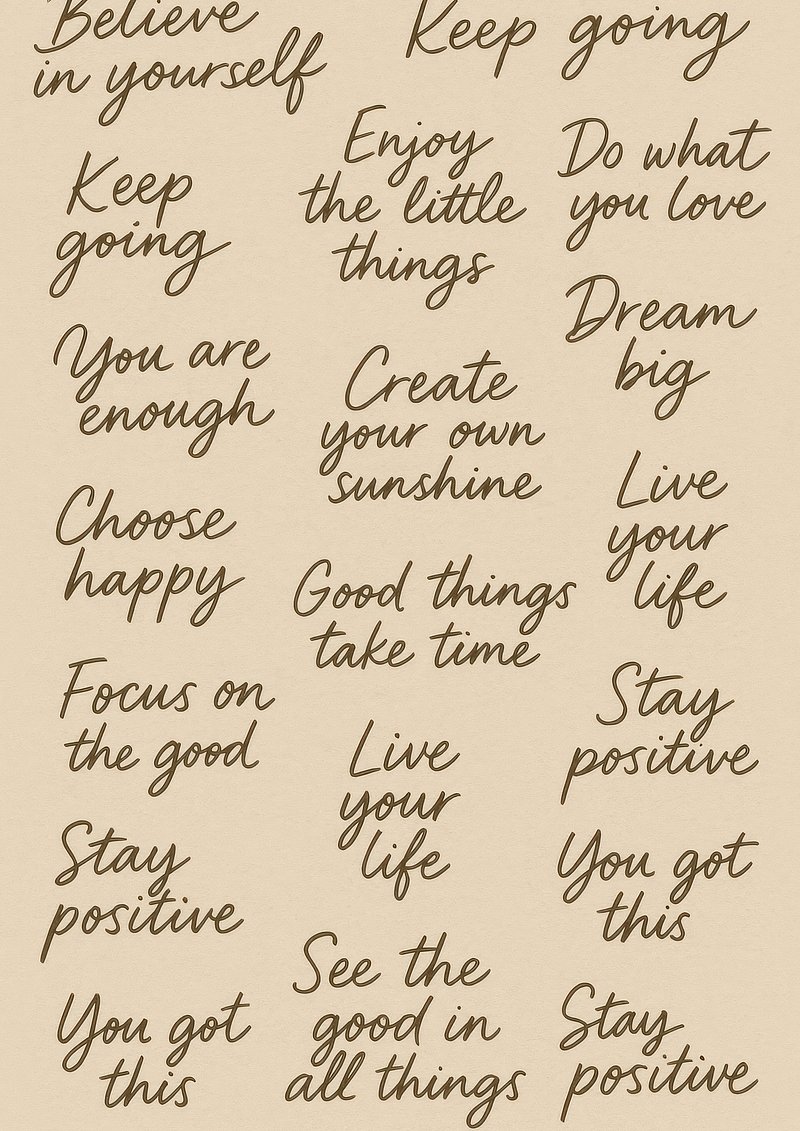 Believe
in yourself
Keep going
Keep
going
Enjoy
the little
things
Do what
you love
You are
enough
Create
your own
sunshine
Dream
big
Choose
happy
Good things
take time
Live
your
life
Focus on
the good
Live
your
life
Stay
positive
Stay
positive
See the
good in
all things
You got
this
You got
this
Stay
positive